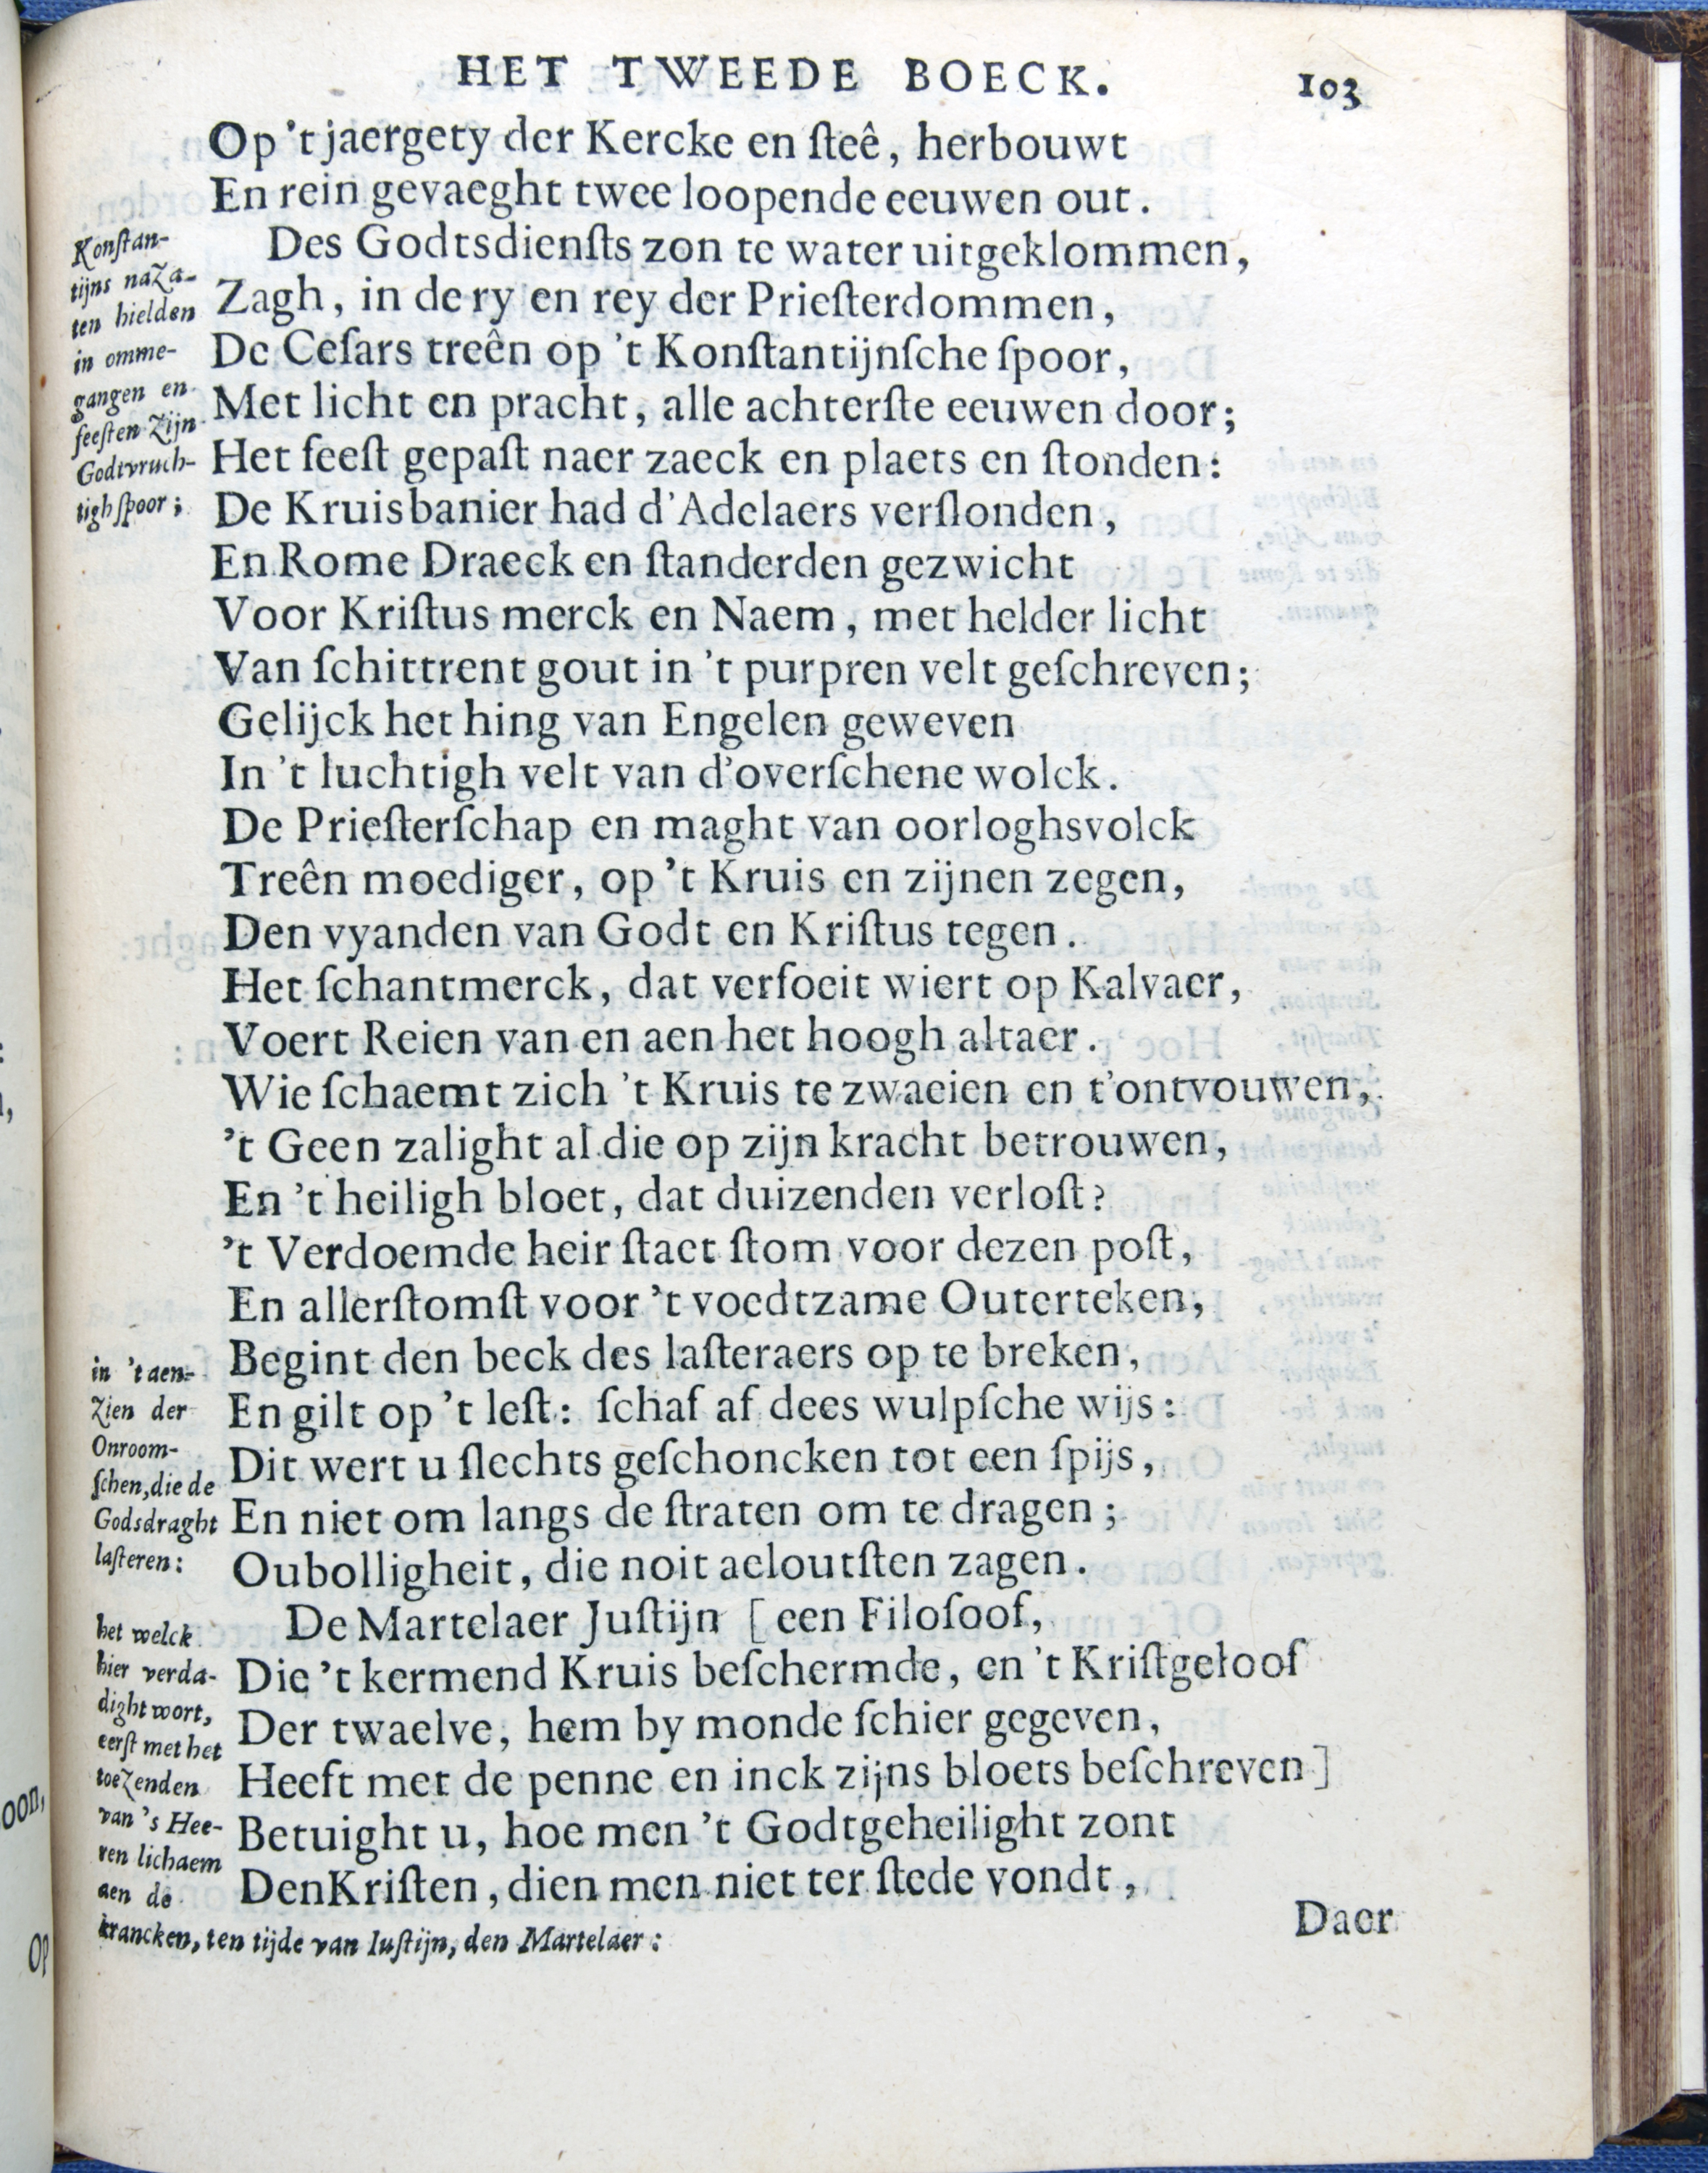 HET TWEEDE BOECK. 103
Op 't jaergety der Kercke en ſteê, herbouwt
En rein gevaeght twee loopende eeuwen out.
Des Godtsdienſts zon te water uitgeklommen,
Zagh, in de ry en rey der Prieſterdommen,
De Ceſars treên op 't Konſtantijnſche ſpoor,
Met licht en pracht, alle achterſte eeuwen door;
Het feeſt gepaſt naer zaeck en plaets en ſtonden:
De Kruisbanier had d'Adelaers verſlonden,
En Rome Draeck en ſtanderden gezwicht
Voor Kriſtus merck en Naem, met helder licht
Van ſchittrent gout in 't purpren velt geſchreven;
Gelijck het hing van Engelen geweven
In 't luchtigh velt van d'overſchene wolck.
De Prieſterſchap en maght van oorloghsvolck
Treên moediger, op 't Kruis en zijnen zegen,
Den vyanden van Godt en Kriſtus tegen.
Het ſchantmerck, dat verfoeit wiert op Kalvaer,
Voert Reien van en aen het hoogh altaer.
Wie ſchaemt zich 't Kruis te zwaeien en t'ontvouwen,
't Geen zalight al die op zijn kracht betrouwen,
En 't heiligh bloet, dat duizenden verloſt?
't Verdoemde heir ſtaet ſtom voor dezen poſt,
En allerſtomſt voor 't voedtzame Outerteken,
Begint den beck des laſteraers op te breken,
En gilt op 't leſt: ſchaf af dees wulpſche wijs:
Dit wert u ſlechts geſchoncken tot een ſpijs,
En niet om langs de ſtraten om te dragen;
Oubolligheit, die noit aeloutſten zagen.
De Martelaer Juſtijn [een Filoſoof,
Die 't kermend Kruis beſchermde, en 't Kriſtgeloof
Der twaelve, hem by monde ſchier gegeven,
Heeft met de penne en inck zijns bloets beſchreven]
Betuight u, hoe men 't Godtgeheilight zont
Den Kriſten, dien men niet ter ſtede vondt,
Daer
Konſtan-
tijns naza-
ten hielden
in omme-
gangen en
feeſten zijn
Godtvruch-
tigh ſpoor;
in 't aen-
zien der
Onroom-
ſchen, die de
Godsdraght
laſteren:
het welck
hier verda-
dight wort,
eerſt met het
toezenden
van 's Hee-
ren lichaem
aen de
krancken, ten tijde van Iuſtijn, den Martelaer:
oon,
Op